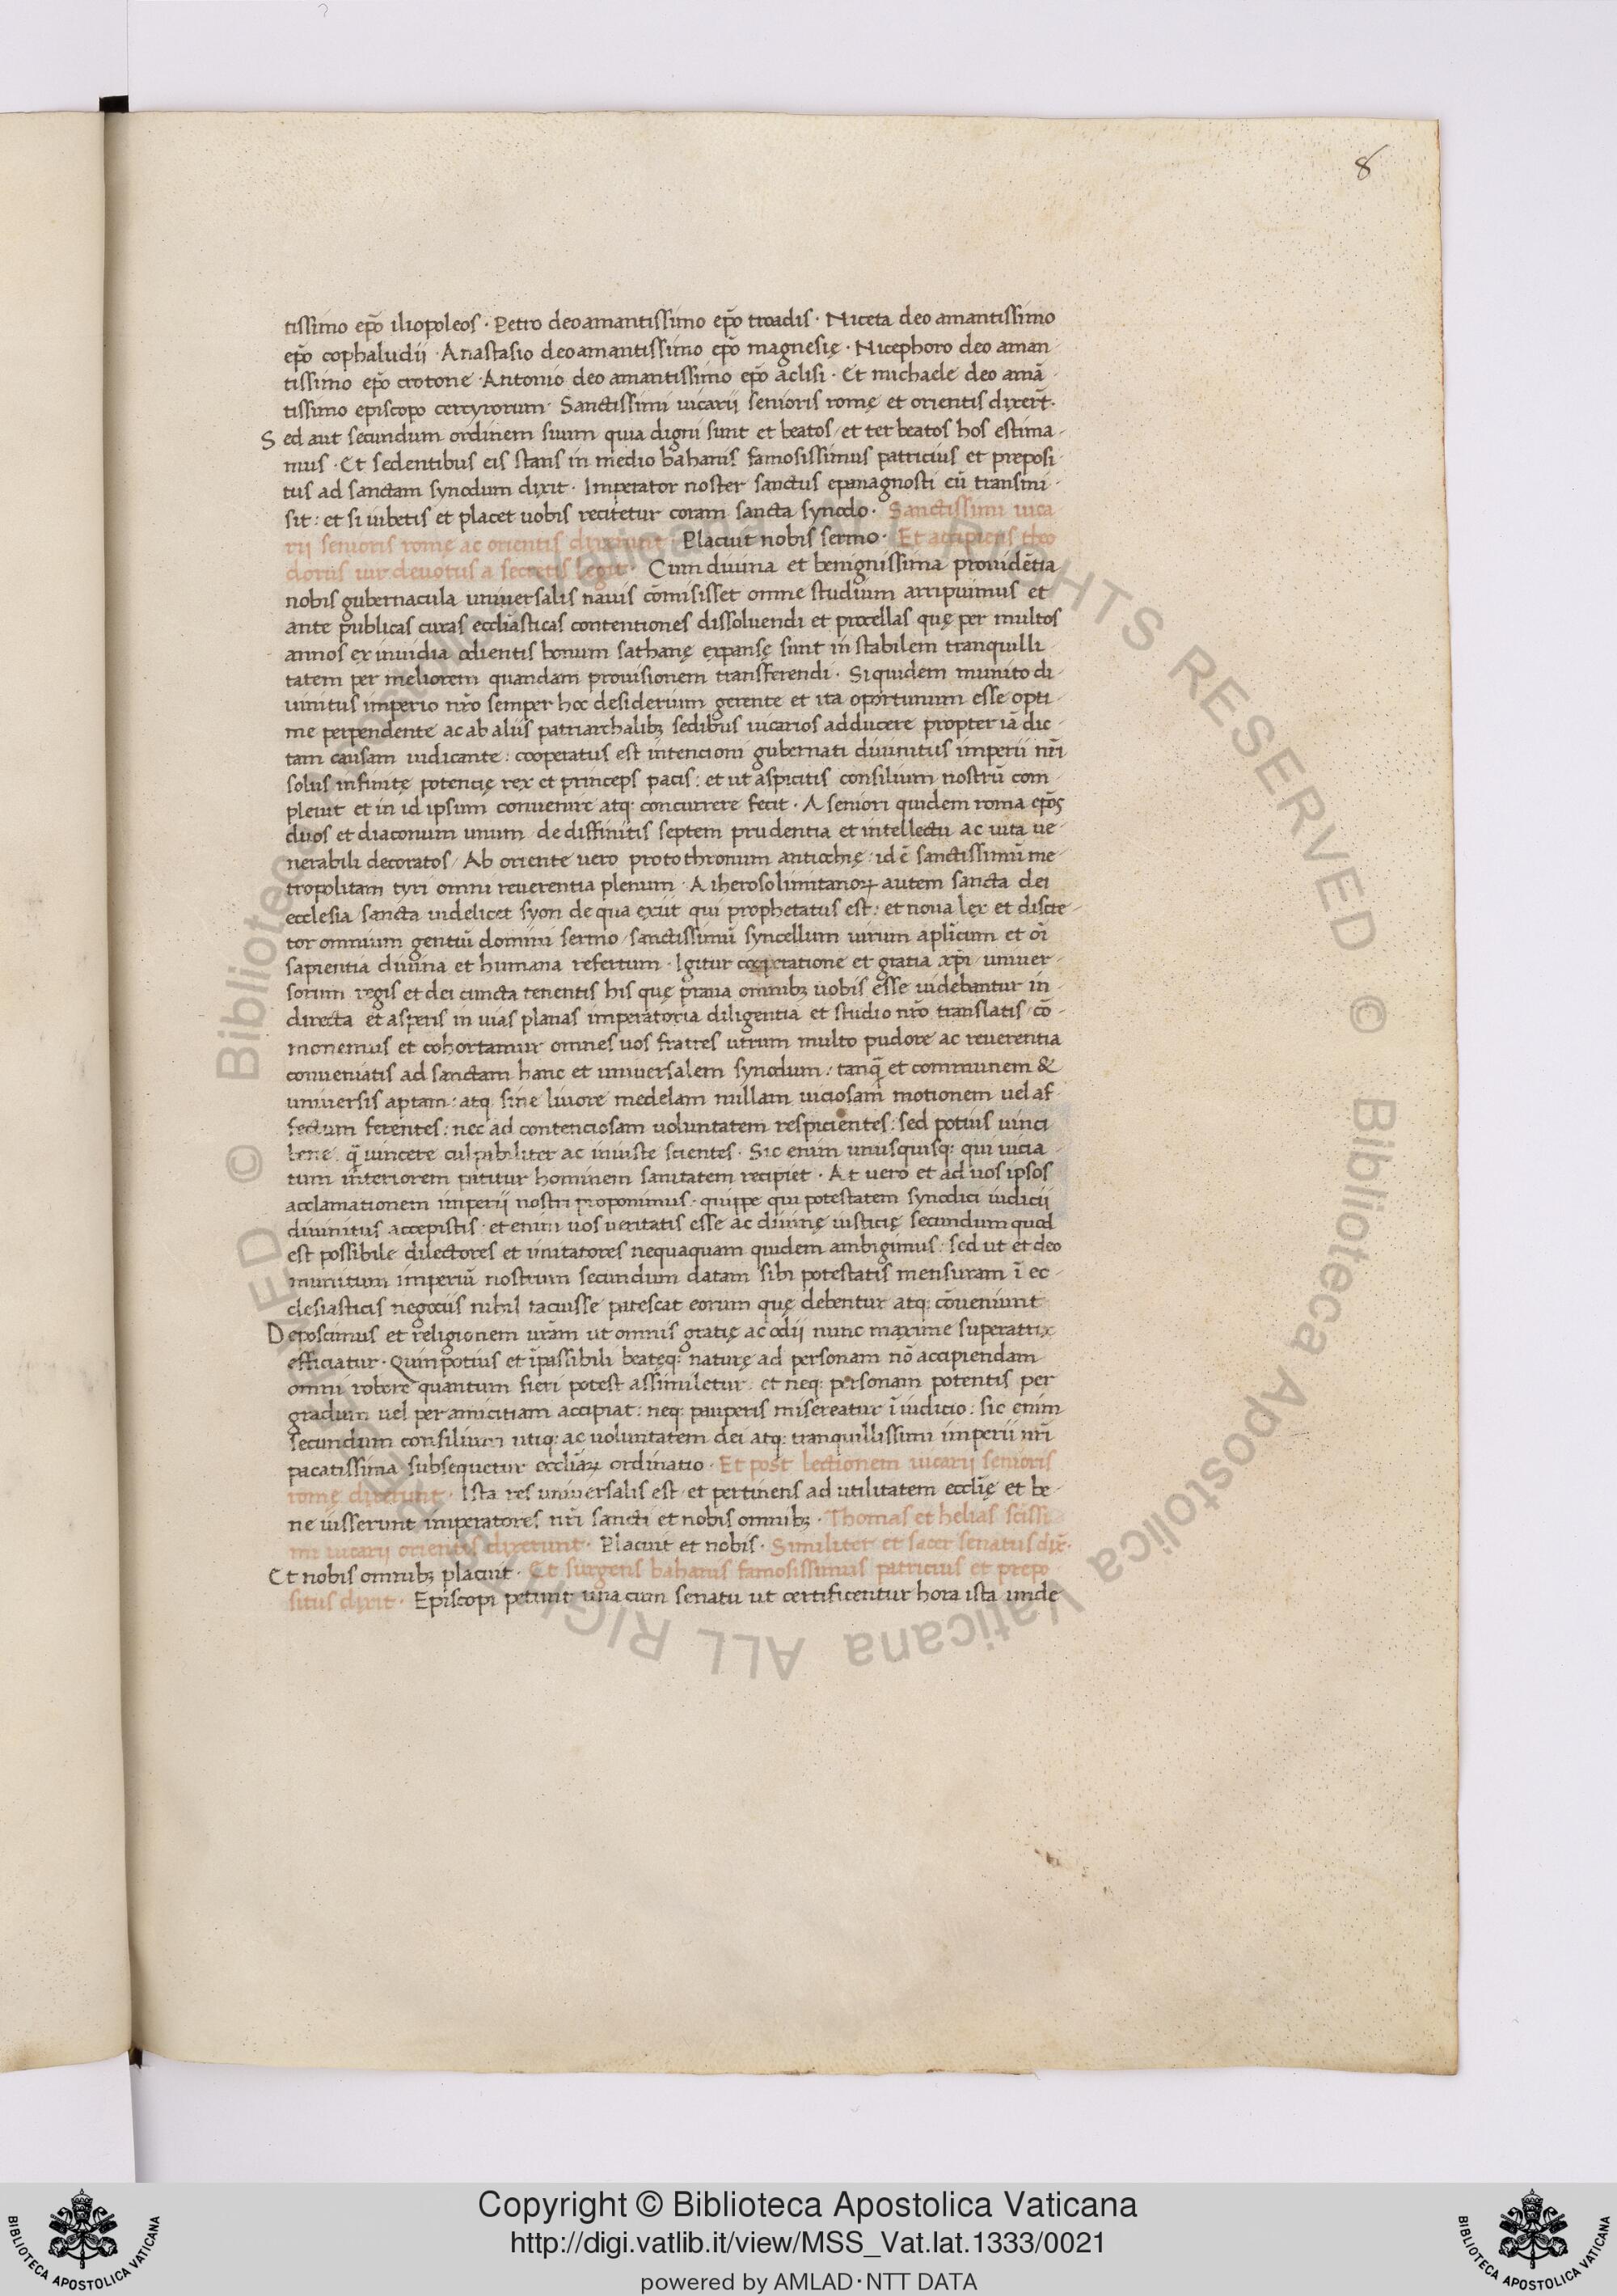 8
tissimo ep̃o iliopoleos · Petro deo amantissimo ep̃o troadis · Niceta deo amantissimo
ep̃o cophaludij · Anastasio deo amantissimo ep̃o magnesię · Nicephoro deo aman-
tissimo ep̃o crotone · Antonio deo amantissimo ep̃o aclisi · Et michaele deo amā-
tissimo episcopo cercyrorum · Sanctissimi uicarij senioris romę et orientis dixer̃t ·
Sed aut secundum ordinem suum quia digni sunt et beatos et ter beatos hos estima-
mus · Et sedentibus eis stans in medio bahanis famosissimus patricius et preposi-
tus ad sanctam synodum dixit · Imperator noster sanctus epanagnosti cū transmi-
sit : et si iubetis et placet uobis recitetur coram sancta synodo · Sanctissimi uica
rij senioris romę ac orientis dixerunt · Placuit nobis sermo · Et accipiens theo
dorus uir deuotus a secretis legit · Cum diuina et benignissima prouidētia
nobis gubernacula uniuersalis nauis cōmisisset omne studium arripuimus et
ante publicas curas eccl̃iasticas contentiones dissoluendi et procellas quę per multos
annos ex inuidia odientis bonum sathanę expansę sunt in stabilem tranquilli-
tatem per meliorem quandam prouisionem transferendi · Siquidem munito di-
uinitus imperio nr̃o semper hoc desiderium gerente et ita oportunum esse opti-
me perpendente ac ab aliis patriarchalibꝫ sedibus uicarios adducere propter iā dic-
tam causam iudicante : cooperatus est intencioni gubernati diuinitus imperii nr̃i
solus infinitę potencię rex et princeps pacis : et ut aspicitis consilium nostrū com-
pleuit et in id ipsum conuenire atq: concurrere fecit · A seniori quidem roma ep̃os
duos et diaconum unum de diffinitis septem prudentia et intellectu ac uita ue-
nerabili decoratos / Ab oriente uero protothronum antiochię : id ē sanctissimū me-
tropolitam tyri omni reuerentia plenum · A iherosolimitanoꝝ autem sancta dei
ecclesia sancta uidelicet syon de qua exiit qui prophetatus est : et noua lex et discre-
tor omnium gentiū domini sermo / sanctissimū syncellum uirum apl̃icum et oī
sapientia diuina et humana refertum · Igitur cooperatione et gratia xp̃i uniuer-
sorum regis et dei cuncta tenentis his quę praua omnibꝫ uobis esse uidebantur in
directa et asperis in uias planas imperatoria diligentia et studio nr̃o translatis / cō-
monemus et cohortamur omnes uos fratres utrum multo pudore ac reuerentia
conueniatis ad sanctam hanc et uniuersalem synodum : tanq̃ et communem &
uniuersis aptam : atq sine liuore medelam nullam uiciosam motionem uel af
fectum ferentes : nec ad contenciosam uoluntatem respicientes : sed potius uinci
bene q̃ uincere culpabiliter ac iniuste scientes · Sic enim unusquisq: qui uicia-
tum interiorem patitur hominem sanitatem recipiet · At uero et ad uos ipsos
acclamationem imperii nostri proponimus · quippe qui potestatem synodici iudicii
diuinitus accepistis : et enim uos ueritatis esse ac diuinę iusticię secundum quod
est possibile dilectores et imitatores nequaquam quidem ambigimus : sed ut et deo
munitum imperiū nostrum secundum datam sibi potestatis mensuram ī ec-
clesiasticis negociis nihil tacuisse patescat eorum quę debentur atq: cōueniunt
Deposcimus et religionem ur̃am ut omnis gratię ac odij nunc maxime superatrix
efficiatur · Quin potius et īpassibili beateq: naturę ad personam nō accipiendam
omni robore quantum fieri potest assimiletur : et neq: personam potentis per
gradum uel per amicitiam accipiat : neq: pauperis misereatur ī iudicio : sic enim
secundum consilium utiq: ac uoluntatem dei atq: tranquillissimi imperii nr̃i
pacatissima subsequetur eccl̃iaꝝ ordinatio · Et post lectionem uicarij senioris
romę dixerunt · Ista res uniuersalis est et pertinens ad utilitatem eccl̃ię et be-
ne iusserunt imperatores nr̃i sancti et nobis omnibꝫ · Thomas et helias sc̃issi
mi uicarij orientis dixerunt · Placuit et nobis · Similiter et sacer senatus dix̃ ·
Et nobis omnibꝫ placuit · Et surgens bahanis famosissimus patricius et prepo
situs dixit · Episcopi petunt una cum senatu ut certificentur hora ista unde
© Biblioteca Apostolica Vaticana ALL RIGHTS RESERVED © Biblioteca Apostolica Vaticana ALL RIGHTS RESERVED
BIBLIOTECA APOSTOLICA VATICANA
Copyright © Biblioteca Apostolica Vaticana
http://digi.vatlib.it/view/MSS_Vat.lat.1333/0021
powered by AMLAD·NTT DATA
BIBLIOTECA APOSTOLICA VATICANA